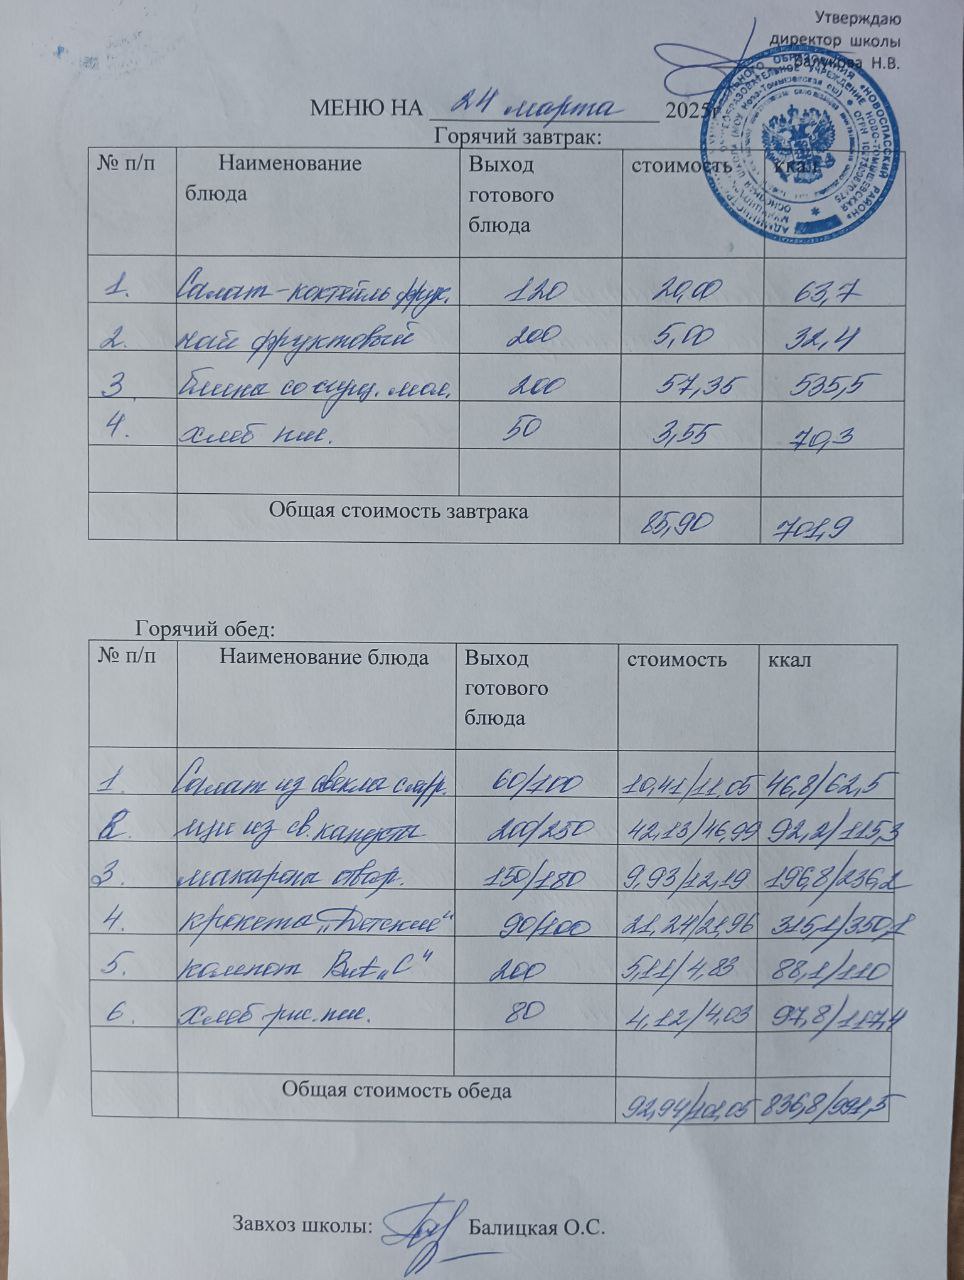 Утверждаю
директор школы
Н.В.
МЕНЮ НА 24 марта 2025г
Горячий завтрак:
№ п/п Наименование блюда Выход готового блюда стоимость ккал
1. Салат-коктейль фрук. 120 20,00 63,7
2. чай фруктовый 200 5,00 32,4
3. блины со сгущ. мол. 200 57,35 535,5
4. хлеб пш. 50 3,55 70,3
Общая стоимость завтрака 85,90 701,9
Горячий обед:
№ п/п Наименование блюда Выход готового блюда стоимость ккал
1. Салат из свеклы с 60/100 10,41/11,05 46,8/62,5
2. щи из св. капусты 200/250 42,13/46,99 92,2/115,3
3. макароны отвар. 150/180 9,93/12,19 196,8/236,2
4. крокеты „Детские" 90/100 21,24/21,96 315,1/350,1
5. компот Вит „С" 200 5,11/4,83 88,1/110
6. хлеб рж. пш. 80 4,12/4,03 97,8/117,4
Общая стоимость обеда 92,94/101,05 836,8/991,5
Завхоз школы: Балицкая О.С.